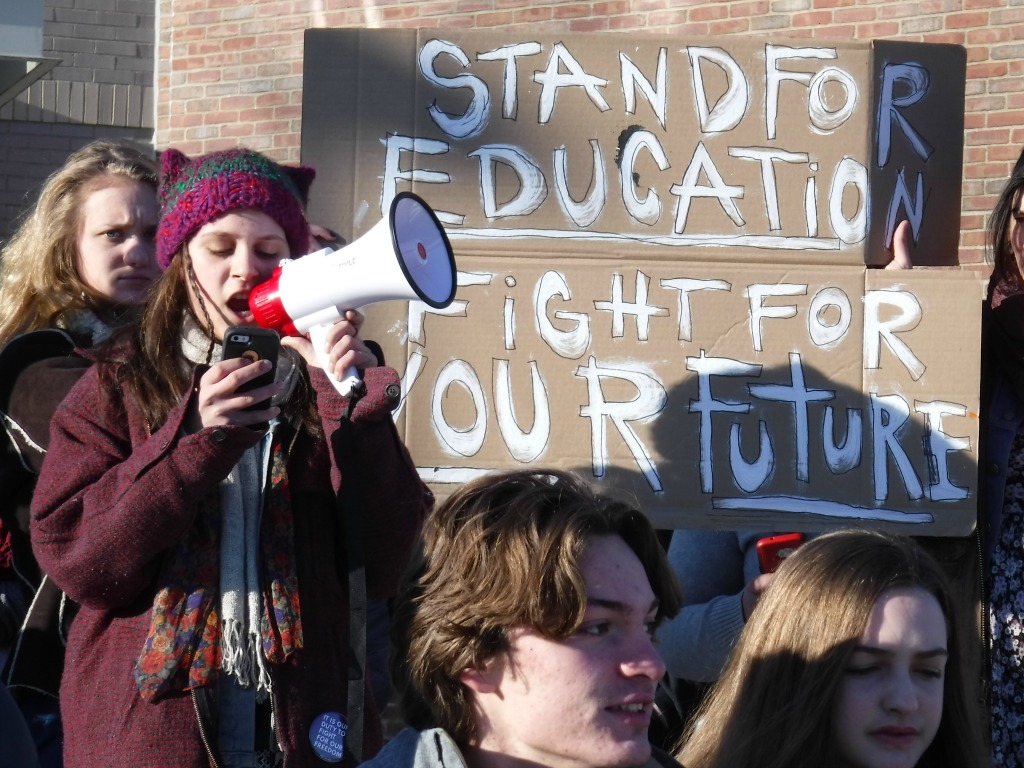 STAND FOR
EDUCATION
FIGHT FOR
YOUR FUTURE
IT IS OUR
DUTY TO
FIGHT
FOR OUR
FREEDOM